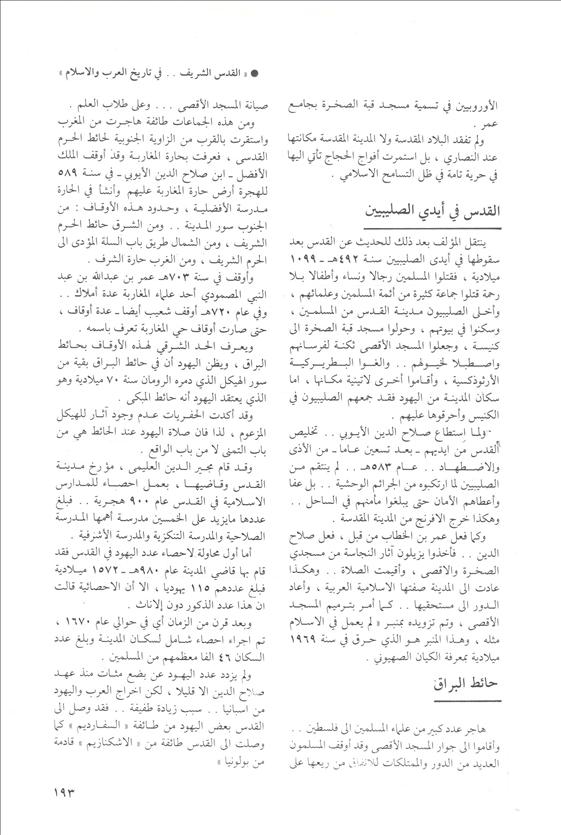 ● « القدس الشريف . . في تاريخ العرب والاسلام »
الأوروبيين في تسمية مسجد قبة الصخرة بجامع
عمر .
ولم تفقد البلاد المقدسة ولا المدينة المقدسة مكانتها
عند النصارى ، بل استمرت أفواج الحجاج تأتي اليها
في حرية تامة في ظل التسامح الاسلامي .
القدس في أيدي الصليبيين
ينتقل المؤلف بعد ذلك للحديث عن القدس بعد
سقوطها في أيدى الصليبيين سنة ٤٩٢هـ - ١٠٩٩
ميلادية ، فقتلوا المسلمين رجالا ونساء وأطفالا بلا
رحمة قتلوا جماعة كثيرة من أئمة المسلمين وعلمائهم ،
وأخلى الصليبيون مدينة القدس من المسلمين ،
وسكنوا في بيوتهم ، وحولوا مسجد قبة الصخرة الى
كنيسة ، وجعلوا المسجد الأقصى ثكنة لفرسانهم
واصطبلا لخيولهم . . والغوا البطريركية
الأرثوذكسية ، وأقاموا أخرى لاتينية مكانها ، اما
سكان المدينة من اليهود فقد جمعهم الصليبيون في
الكنيس وأحرقوها عليهم .
ولما إستطاع صلاح الدين الأيوبي . . تخليص
القدس من ايديهم ـ بعد تسعين عاما ـ من الأذى
والاضطهاد . . عام ٥٨٣هـ . . لم ينتقم من
الصليبيين لما ارتكبوه من الجرائم الوحشية . . بل عفا
وأعطاهم الأمان حتى يبلغوا مأمنهم في الساحل . .
وهكذا خرج الافرنج من المدينة المقدسة .
وكما فعل عمر بن الخطاب من قبل ، فعل صلاح
الدين . . فأخذوا يزيلون آثار النجاسة من مسجدي
الصخرة والاقصى ، وأقيمت الصلاة . . وهكذا
عادت الى المدينة صفتها الاسلامية العربية ، وأعاد
الدور الى مستحقيها . . كما أمر بترميم المسجد
الأقصى ، وتم تزويده بمنبر « لم يعمل في الاسلام
مثله ، وهذا المنبر هو الذي حرق في سنة ١٩٦٩
ميلادية بمعرفة الكيان الصهيوني .
حائط البراق
هاجر عدد كبير من علماء المسلمين الى فلسطين . .
وأقاموا الى جوار المسجد الأقصى وقد أوقف المسلمون
العديد من الدور والممتلكات للانفاق من ريعها على
صيانة المسجد الأقصى . . . وعلى طلاب العلم .
ومن هذه الجماعات طائفة هاجرت من المغرب
واستقرت بالقرب من الزاوية الجنوبية لحائط الحرم
القدسى ، فعرفت بحارة المغاربة وقد أوقف الملك
الأفضل ـ ابن صلاح الدين الأيوبي ـ في سنة ٥٨٩
للهجرة أرض حارة المغاربة عليهم وأنشأ في الحارة
مدرسة الأفضلية ، وحدود هذه الأوقاف : من
الجنوب سور المدينة . . ومن الشرق حائط الحرم
الشريف ، ومن الشمال طريق باب السلة المؤدى الى
الحرم الشريف ، ومن الغرب حارة الشرف .
وأوقف في سنة ٧٠٣هـ عمر بن عبدالله بن عبد
النبي المصمودي أحد علماء المغاربة عدة أملاك . .
وفي عام ٧٢٠هـ أوقف شعيب أيضا ـ عدة أوقاف ،
حتى صارت أوقاف حي المغاربة تعرف باسمه .
ويعرف الحد الشرقي لهذه الأوقاف بحائط
البراق ، ويظن اليهود أن في حائط البراق بقية من
سور الهيكل الذي دمره الرومان سنة ٧٠ ميلادية وهو
الذي يعتقد اليهود أنه حائط المبكى .
وقد أكدت الحفريات عدم وجود آثار للهيكل
المزعوم ، لذا فان صلاة اليهود عند الحائط هي من
باب التمنى لا من باب الواقع .
وقد قام مجير الدين العليمى ، مؤرخ مدينة
القدس وقاضيها ، بعمل احصاء للمدارس
الاسلامية في القدس عام ٩٠٠ هجرية . . فبلغ
عددها مايزيد على الخمسين مدرسة أهمها المدرسة
الصلاحية والمدرسة التنكزية والمدرسة الأشرفية .
أما أول محاولة لاحصاء عدد اليهود في القدس فقد
قام بها قاضي المدينة عام ٩٨٠هـ - ١٥٧٢ ميلادية
فبلغ عددهم ١١٥ يهوديا ، الا أن الاحصائية قالت
ان هذا عدد الذكور دون الاناث .
وبعد قرن من الزمان أي في حوالي عام ١٦٧٠ ،
تم اجراء احصاء شامل لسكان المدينة وبلغ عدد
السكان ٤٦ الفا معظمهم من المسلمين .
ولم يزدد عدد اليهود عن بضع مئات منذ عهد
صلاح الدين الا قليلا ، لكن اخراج العرب واليهود
من اسبانيا . . سبب زيادة طفيفة . . فقد وصل الى
القدس بعض اليهود من طائفة « السفارديم » كما
وصلت الى القدس طائفة من « الاشكنازيم » قادمة
من بولونيا »
١٩٣